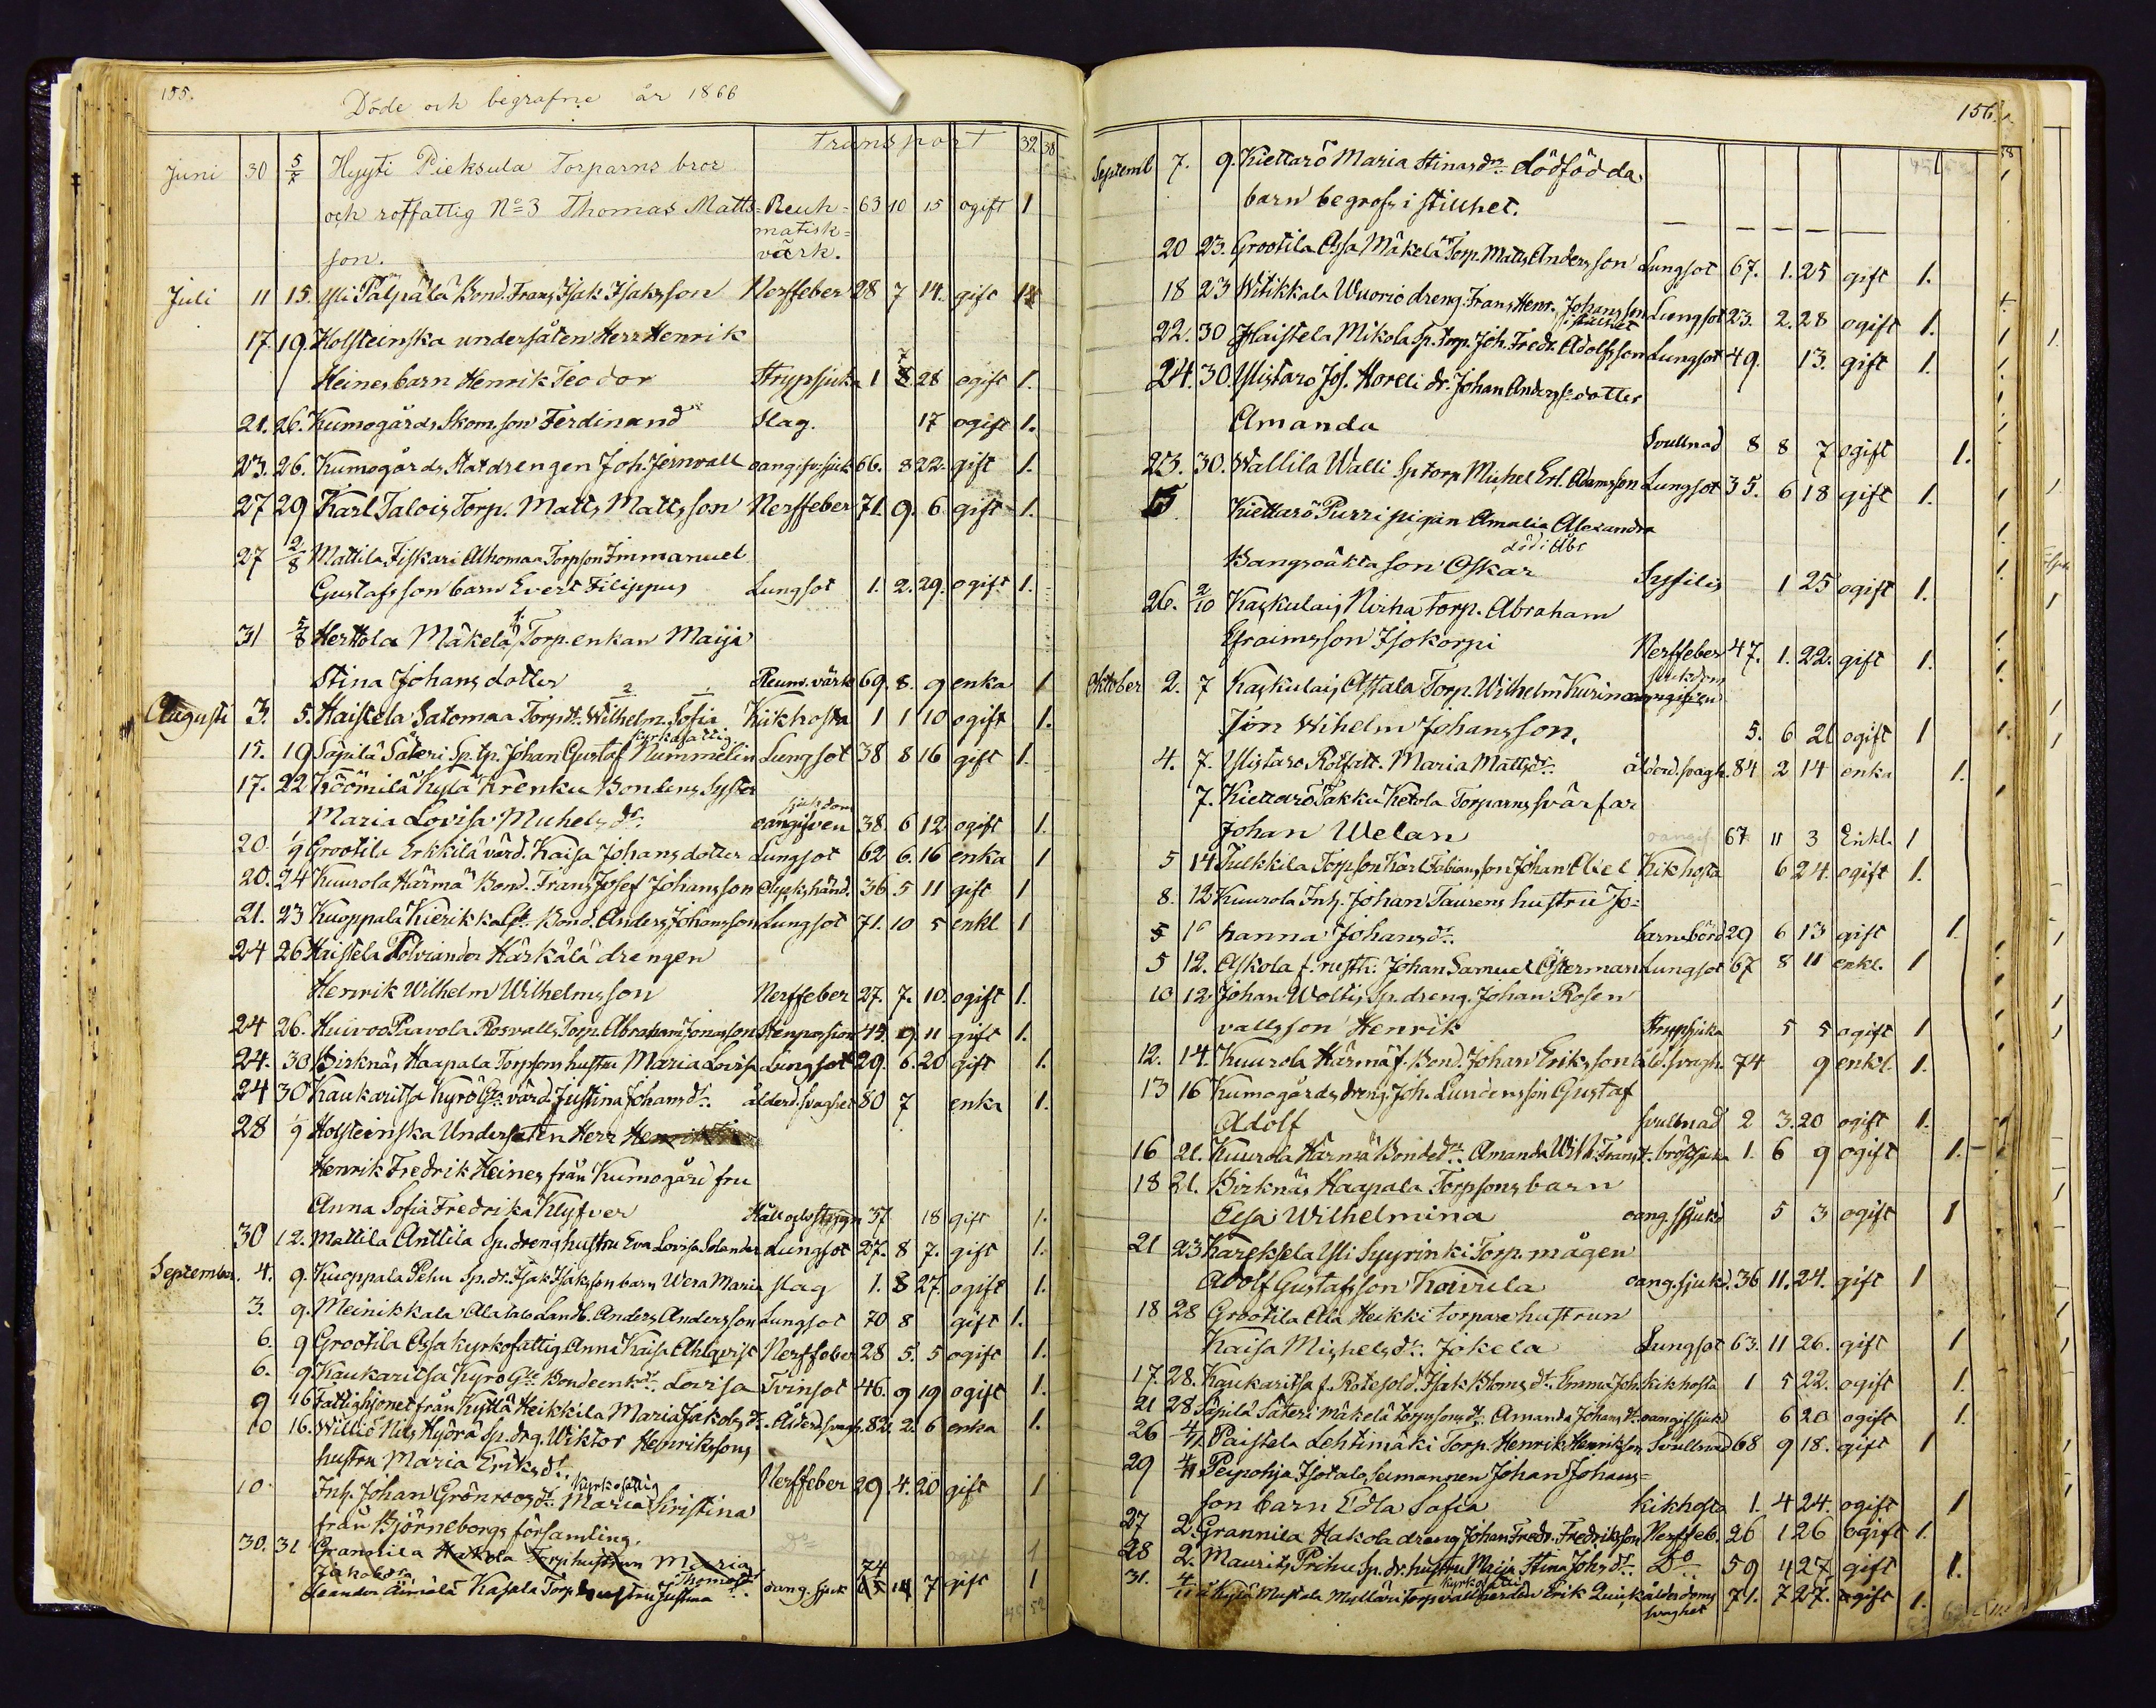 155.
Döde och begrafne år 1866
transport 32 38
Juni 30 5/7 Hyyti Pieksula Torparns bror
och rotfattig No 3 Thomas Matts= Reuh= 63 10 15 ogift 1
matisk=
son. värk.
Juli 11 15. Yli Pälpälä Bond. Frans Isak Isaksson Nerffeber 28 7 14. gift 1
17. 19. Holsteinska undersåten Herr Henrik
Heines barn Henrik Teodor Strypsjuka 1 7 28 ogift 1.
21. 26. Kumogårds Skom. son Ferdinand Slag. 17 ogift 1.
23. 26. Kumogårds Statdrengen Joh. Jernvall oangifv: sjuk 66. 8 22. gift 1.
27 29 Karl Talois Torp. Matts Mattsson Nerffeber 71. 9. 6. gift 1.
27 2/8 Mattila Fiskari Alhomaa Torpson Immanuel
Gustafsson barn Evert Filippus Lungsot 1. 2. 29. ogift 1.
31 5/8 Herttola Mäkelä f. Torp. enkan Maija
Stina Johansdotter Reum. värk 69. 8. 9 enka 1
Augusti 3. 5. Haistela Satomaa Torp. dr. Wilhelm. Sofia Kikhosta 1 1 10 ogift 1.
kyrkofattig
15. 19 Säpilä Säteri Sp. tp. Johan Gustaf Nummelin Lungsot 38 8 16 gift 1.
17. 22 Köömilä Kylä Krenku Bondens Syster
sjukdom
Maria Lovisa Michels dr. oangifven 38. 6 12 ogift 1.
20 1/9 Grootila Erkkilä värd. Kaisa Johansdotter Lungsot 62 6. 16 enka 1
20. 24 Kuurola Härmä Bond. Frans Josef Johansson Olyckshänd. 36 5 11 gift 1
21. 23 Kuoppala Kierikka Bond. Anders Johansson Lungsot 71. 10 5 enkl 1
24 26 Haistela Härkälä drengen
Henrik Wilhelm Wilhelmsson Nerffeber 27. 7. 10. ogift 1.
24 26. Huivoo Paavola Rosvalls Torp. Abraham Jonasson Stenpassion 49. 9. 11 gift 1.
24. 30 Birknäs Haapala Torpsons hustru Maria Lovisa Lungsot 29. 6. 20 gift 1.
24 30 Kaukaritsa Kyrö Gla värd. Justina Johans dr. ålderd. svaghet 80 7 enka 1.
28 1/9 Holsteinska Undersåten Herr
Henrik Fredrik Heines från Kumogård fru
Anna Sofia Fredrika Klyfver Håll och styng 37 18 gift 1.
30 12. Mattila Anttila Sp. dreng hustru Eva Lovisa Selander Lungsot 27. 8 7. gift 1.
September. 4. 9. Kuoppala Pehu Sp. dr. Isak Isaksson barn Wera Maria slag 1. 8 27. ogift 1.
3. 9. Meinikkala Ala talo Landb. Anders Andersson Lungsot 70 8 gift 1.
6. 9 Grootila Ossa kyrkofattig Anna Kaisa Ahlqvist Nerffeber 28 5. 5 ogift 1.
6. 9 Kaukaritsa Kyrö Gla Bondeenk dr. Lovisa Tvinsot 46. 9 19 ogift 1.
9 16 Fattighjonet från Kyttä Heikkilä Maria Jakobs dr. Ålderd. svagh. 82. 2. 6 enka 1.
10 16. Williö Nils Hjörä Sp. drg. Wiktor Henrikssons
hustru Maria Eriks dr. Nerffeber 29 4. 20 gift 1
Kyrkofattig
10. Inh. Johan Grönroos dr. Maria Kristina
från Björneborgs församling. Do ogif 1
30. 31 Grannila Hakola Torp hustrun Maria
Jakobsa Thomas dr 74
Leander Äimälä Kasala Torp. hustru Justina oang. sjuk 7 gift 1
40 52
156.
Septemb 7. 9. Kiettarö Maria Stinas dr. dödfödda
barn begrofs i stillhet.
20 23. Grootila Ossa Mäkelä Torp. Matts Andersson Lungsot 67. 1. 25 gift 1.
18 23 Witikkala Wuorio dreng. Frans Henr. Johansson Lungsot 23. 2. 28 ogift 1.
i stillhet
22. 30 Haistela Mikola Sp. torp. Joh. Fredr. Adolfsson Lungsot 49. 13. gift 1.
24. 30. Ylistaro Jos. Horelli dr. Johan Anders dotter
Amanda Svullnad 8 8 7 ogift 1.
23. 30. Wallila Walli Sp torp Michel Erl. Adamsson Lungsot 35. 6 18 gift 1.
Kiettarö Purri pigan Amalia Alexandra
död i Åbo
Bangsoäkta son Oskar Syfilis 1 25 ogift 1.
26. 2/10 Kaskulais Nirha torp. Abraham
Efraimsson Isokorpi Nerffeber 47. 1. 22. gift 1.
sjukdom
Oktober 2. 7 Kaskulais Astala Torp. Wilhelm Kurina oangifven
son Wilhelm Johansson. 5. 6 21 ogift 1
4. 7. Ylistaro Rotfatt. Maria Matts dr. ålderd. svagh. 84 2 14 enka 1.
7. Kiettarö Takku Ketola Torparns svärfar
Johan Welan oangif. 67 11 3 Enkl. 1
5 14 Tulkkila Torpson Karl Fabiansson Johan Kikhosta 6 24. ogift 1.
8. 12 Kuurola Inh. Johan Taurens hustru Jo=
hanna Johans dr. barnsbörd 29 6 13 gift 1.
5 12. Askola f. rusth. Johan Samuel Österman Lungsot 67 8 11 enkl. 1
10 12 Johan Woltis Sp. dreng. Johan Rosen
valls son Henrik Strypsjuka 5 5 ogift 1
12. 14. Kuurola Härmä f. Bond. Johan Eriksson åld. svagh. 74 9 enkl. 1.
13 16 Kumogårds dreng. Joh. Lundens son Gustaf
Adolf Svullnad 2 3. 20 ogift 1.
16 21. Kuurola Härmä Bonde dr. Amanda Wilh. Frans dr. bröstsjuka 1. 6 9 ogift 1.
18 21. Birknäs Haapala Torpsons barn
Elsa Wilhelmina oang. sjukd 5 3 ogift 1
21 23 Kareksela Yli Syyrinki Torp. mågen
Adolf Gustafsson Koivula oang. sjukd. 36 11. 24. gift 1
18 28 Grootila Ala Heikki torpare hustrun
Kaisa Michels dr. Jokela Lungsot 63. 11 26. gift 1
17. 28. Kaukaritsa f. Rotesold. Isak Bloms dr. Emma Joh. kikhosta 1 5 22. ogift 1.
21 28 Säpilä Säteri Mäkelä torpsons dr. Amanda Johans dr. oangif sjukd 6 20 ogift 1.
26 4/11 Paistela Lehtimäki Torp. Henrik Henriksson Svullnad 68 9 18. gift 1
29 4/11 Peipohja Isotalo Seimannen Johan Johans=
son barn Edla Sofia kikhosta 1. 4 24. ogift 1
27 2. Grannila Hakola dreng Johan Fredr. Fredriksson Nerffeb. 26 1 26 ogift 1.
28 2. Maurits Prihu Sp. dr. hustru Maija Stina Johs dr. Do 59 4 27. gift 1.
kyrkofattig
31. 4/11 Kylä Mustala Mylläri torp Erik Quick ålderdoms 71. 7 27. ogift 1.
svaghet